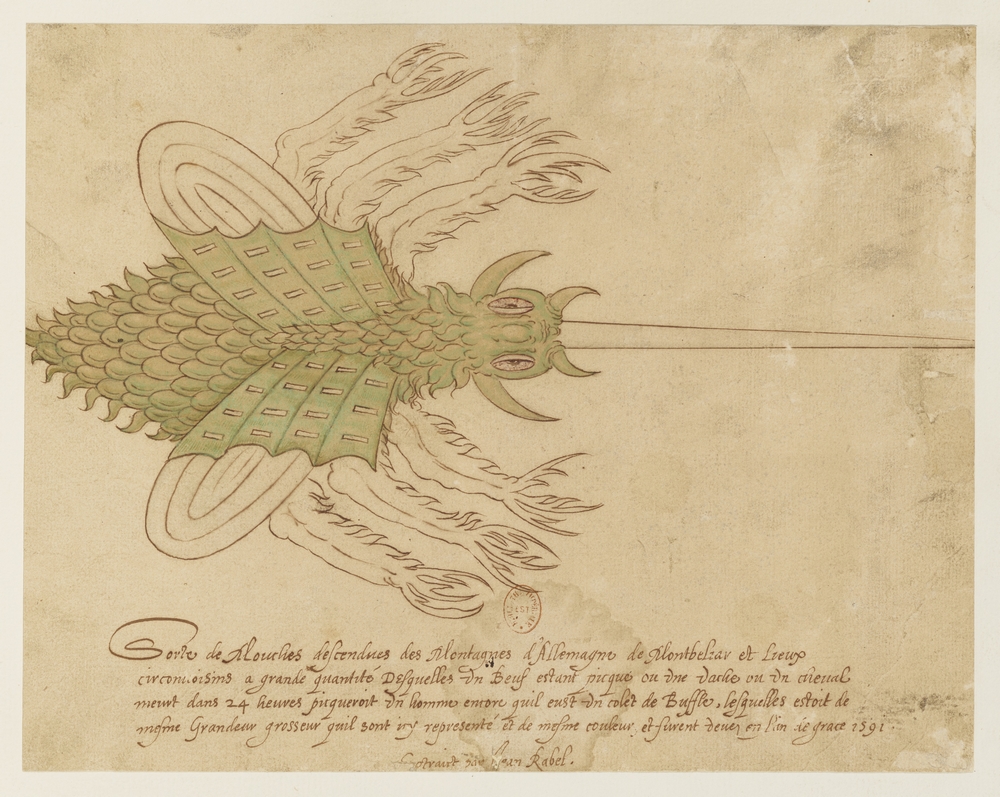 Sorte de Mouches descendues des Montagnes d'Allemagne de Montbeliar et Lieux
circonvoisins a grande quantité Desquelles un Beuf estant picqué ou une vache ou un cheval
meurt dans 24 heures piqueroit un homme encore quil eust un colet de Buffle, lesquelles estoit de
mesme Grandeur grosseur quil sont icy representé et de mesme couleur et furent veues en l'an de grace 1591.
par Jean Rabel.